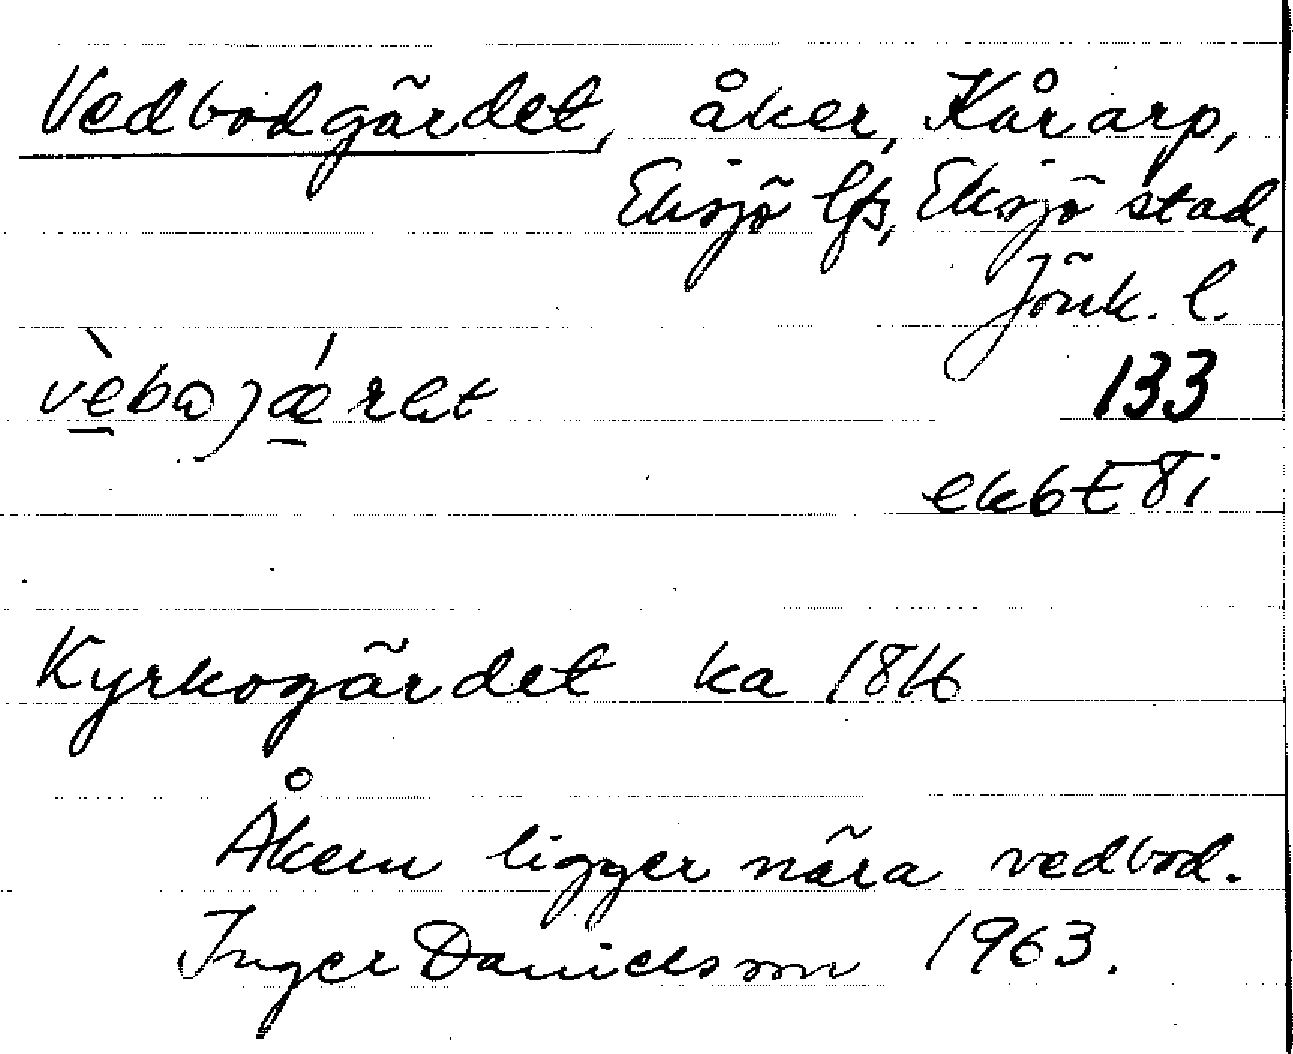 Vedbodgärdet, åker, Kårarp,
Eksjö lfs, Eksjö stad,
Jönk. l.
vèbaɟǽret 133
ekbE8i
Kyrkogärdet ka
Åkern ligger nära vedbod.
Inger Danielsson 1963.